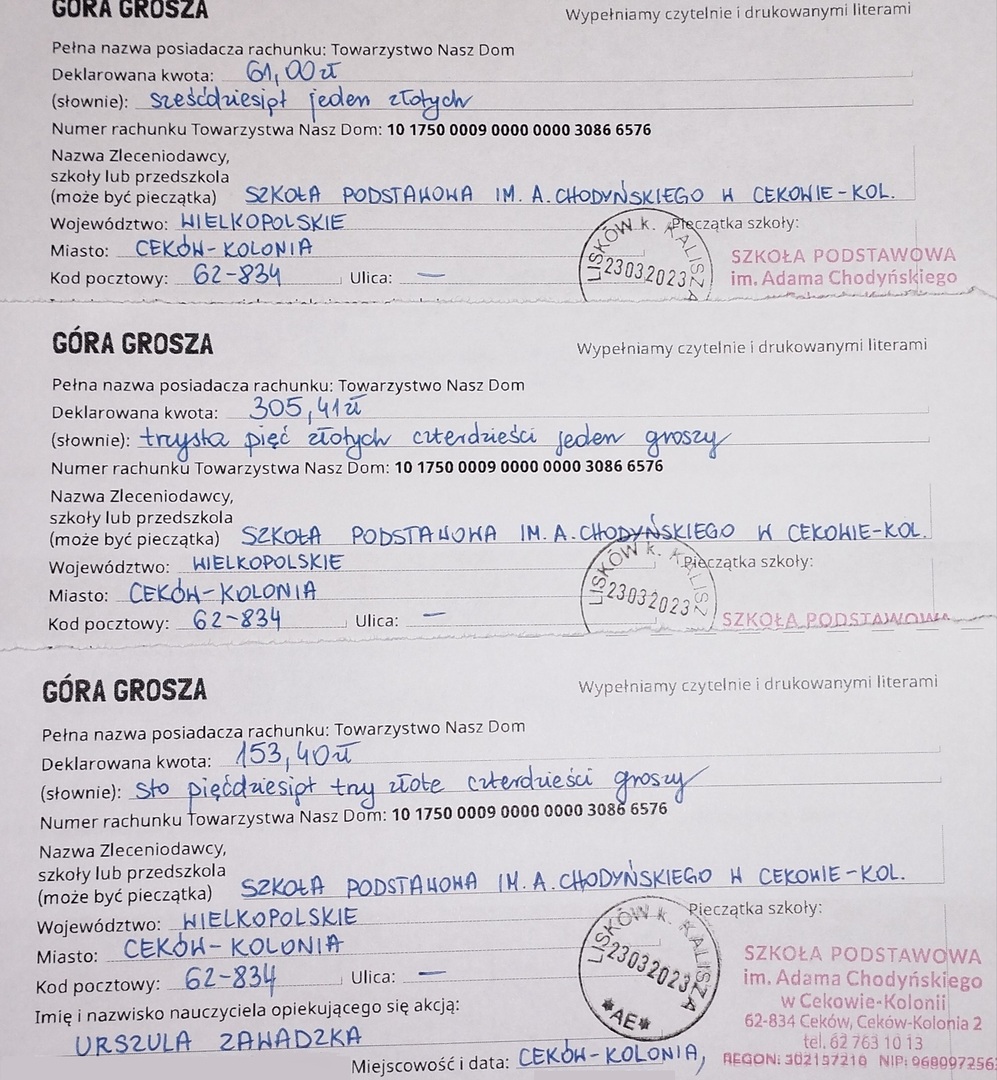 GÓRA GROSZA
Wypełniamy czytelnie i drukowanymi literami
Pełna nazwa posiadacza rachunku: Towarzystwo Nasz Dom
Deklarowana kwota: 61,00 zł
(słownie): sześćdziesiąt jeden złotych
Numer rachunku Towarzystwa Nasz Dom: 10 1750 0009 0000 0000 3086 6576
Nazwa Zleceniodawcy,
szkoły lub przedszkola
(może być pieczątka) SZKOŁA PODSTAWOWA IM. A. CHODYŃSKIEGO W CEKOWIE-KOL.
Województwo: WIELKOPOLSKIE
Pieczątka szkoły:
Miasto: CEKÓW-KOLONIA
Kod pocztowy: 62-834 Ulica: —
LISKÓW k. KALISZA
23032023
SZKOŁA PODSTAWOWA
im. Adama Chodyńskiego
GÓRA GROSZA
Wypełniamy czytelnie i drukowanymi literami
Pełna nazwa posiadacza rachunku: Towarzystwo Nasz Dom
Deklarowana kwota: 305,41 zł
(słownie): trzysta pięć złotych czterdzieści jeden groszy
Numer rachunku Towarzystwa Nasz Dom: 10 1750 0009 0000 0000 3086 6576
Nazwa Zleceniodawcy,
szkoły lub przedszkola
(może być pieczątka) SZKOŁA PODSTAWOWA IM. A. CHODYŃSKIEGO W CEKOWIE-KOL.
Województwo: WIELKOPOLSKIE
Pieczątka szkoły:
Miasto: CEKÓW-KOLONIA
Kod pocztowy: 62-834 Ulica: —
LISKÓW k. KALISZ
23032023
SZKOŁA PODSTAWOWA
GÓRA GROSZA
Wypełniamy czytelnie i drukowanymi literami
Pełna nazwa posiadacza rachunku: Towarzystwo Nasz Dom
Deklarowana kwota: 153,40 zł
(słownie): sto pięćdziesiąt trzy złote czterdzieści groszy
Numer rachunku Towarzystwa Nasz Dom: 10 1750 0009 0000 0000 3086 6576
Nazwa Zleceniodawcy,
szkoły lub przedszkola
(może być pieczątka) SZKOŁA PODSTAWOWA IM. A. CHODYŃSKIEGO W CEKOWIE-KOL.
Województwo: WIELKOPOLSKIE
Pieczątka szkoły:
Miasto: CEKÓW-KOLONIA
Kod pocztowy: 62-834 Ulica: —
LISKÓW k. KALISZA
23032023
*AE*
SZKOŁA PODSTAWOWA
im. Adama Chodyńskiego
w Cekowie-Kolonii
62-834 Ceków, Ceków-Kolonia 2
tel. 62 763 10 13
REGON: 302157210 NIP: 968097256
Imię i nazwisko nauczyciela opiekującego się akcją:
URSZULA ZAWADZKA
Miejscowość i data: CEKÓW-KOLONIA,